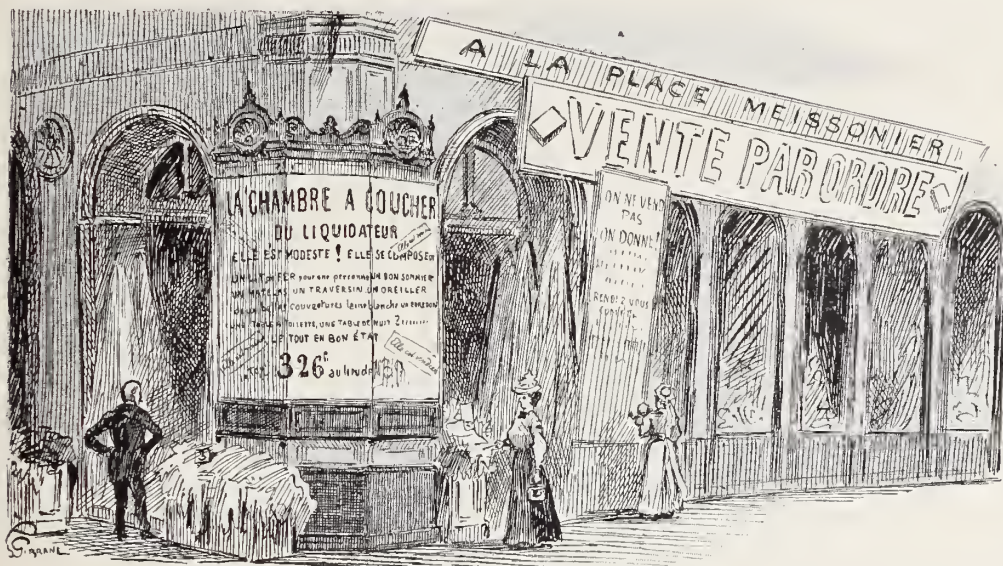 A LA PLACE MEISSONIER
VENTE PAR ORDRE
LA CHAMBRE A COUCHER
DU LIQUIDATEUR
ELLE EST MODESTE ! ELLE SE COMPOSE
UN LIT FER pour une personne UN BON SOMMIER
UN MATELAS UN TRAVERSIN UN OREILLER
couvertures laine blanche UN EDREDON
UNE TABLE TOILETTE, UNE TABLE DE NUIT 2
LE TOUT EN BON ÉTAT
326f au lieu de
Elle est vendue
ON NE VEND
PAS
ON DONNE !
RENDEZ VOUS
G. BRANE